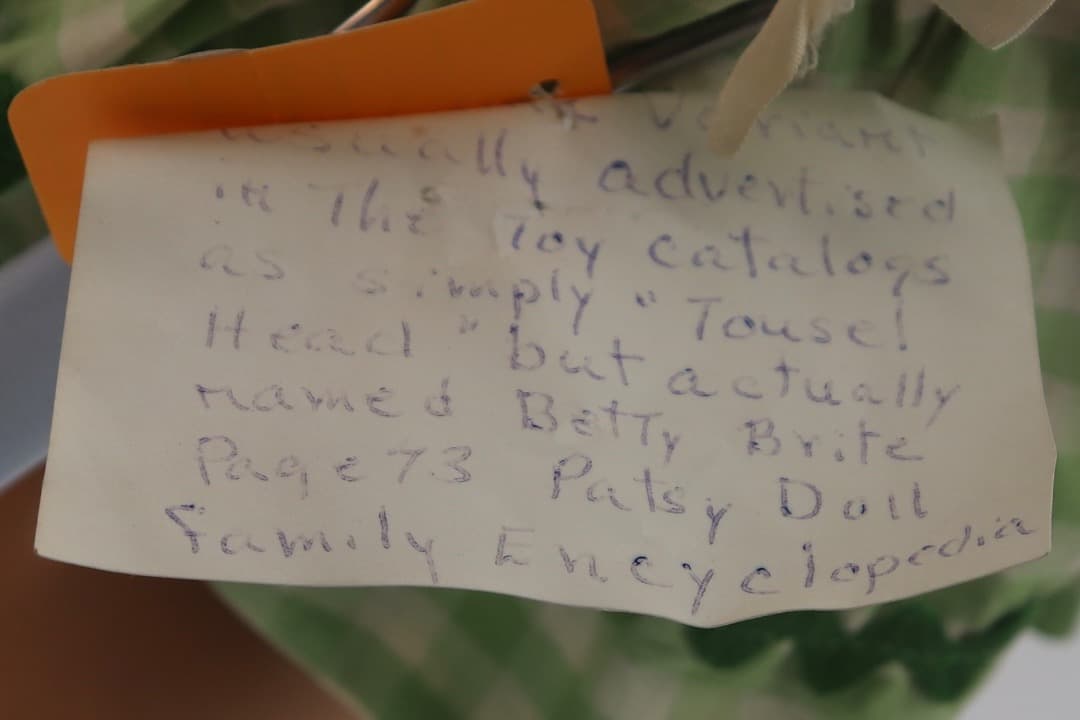 * Variant
usually advertised
in The Toy catalogs
as simply "Tousel
Head" but actually
named Betty Brite
Page 73 Patsy Doll
Family Encyclopedia